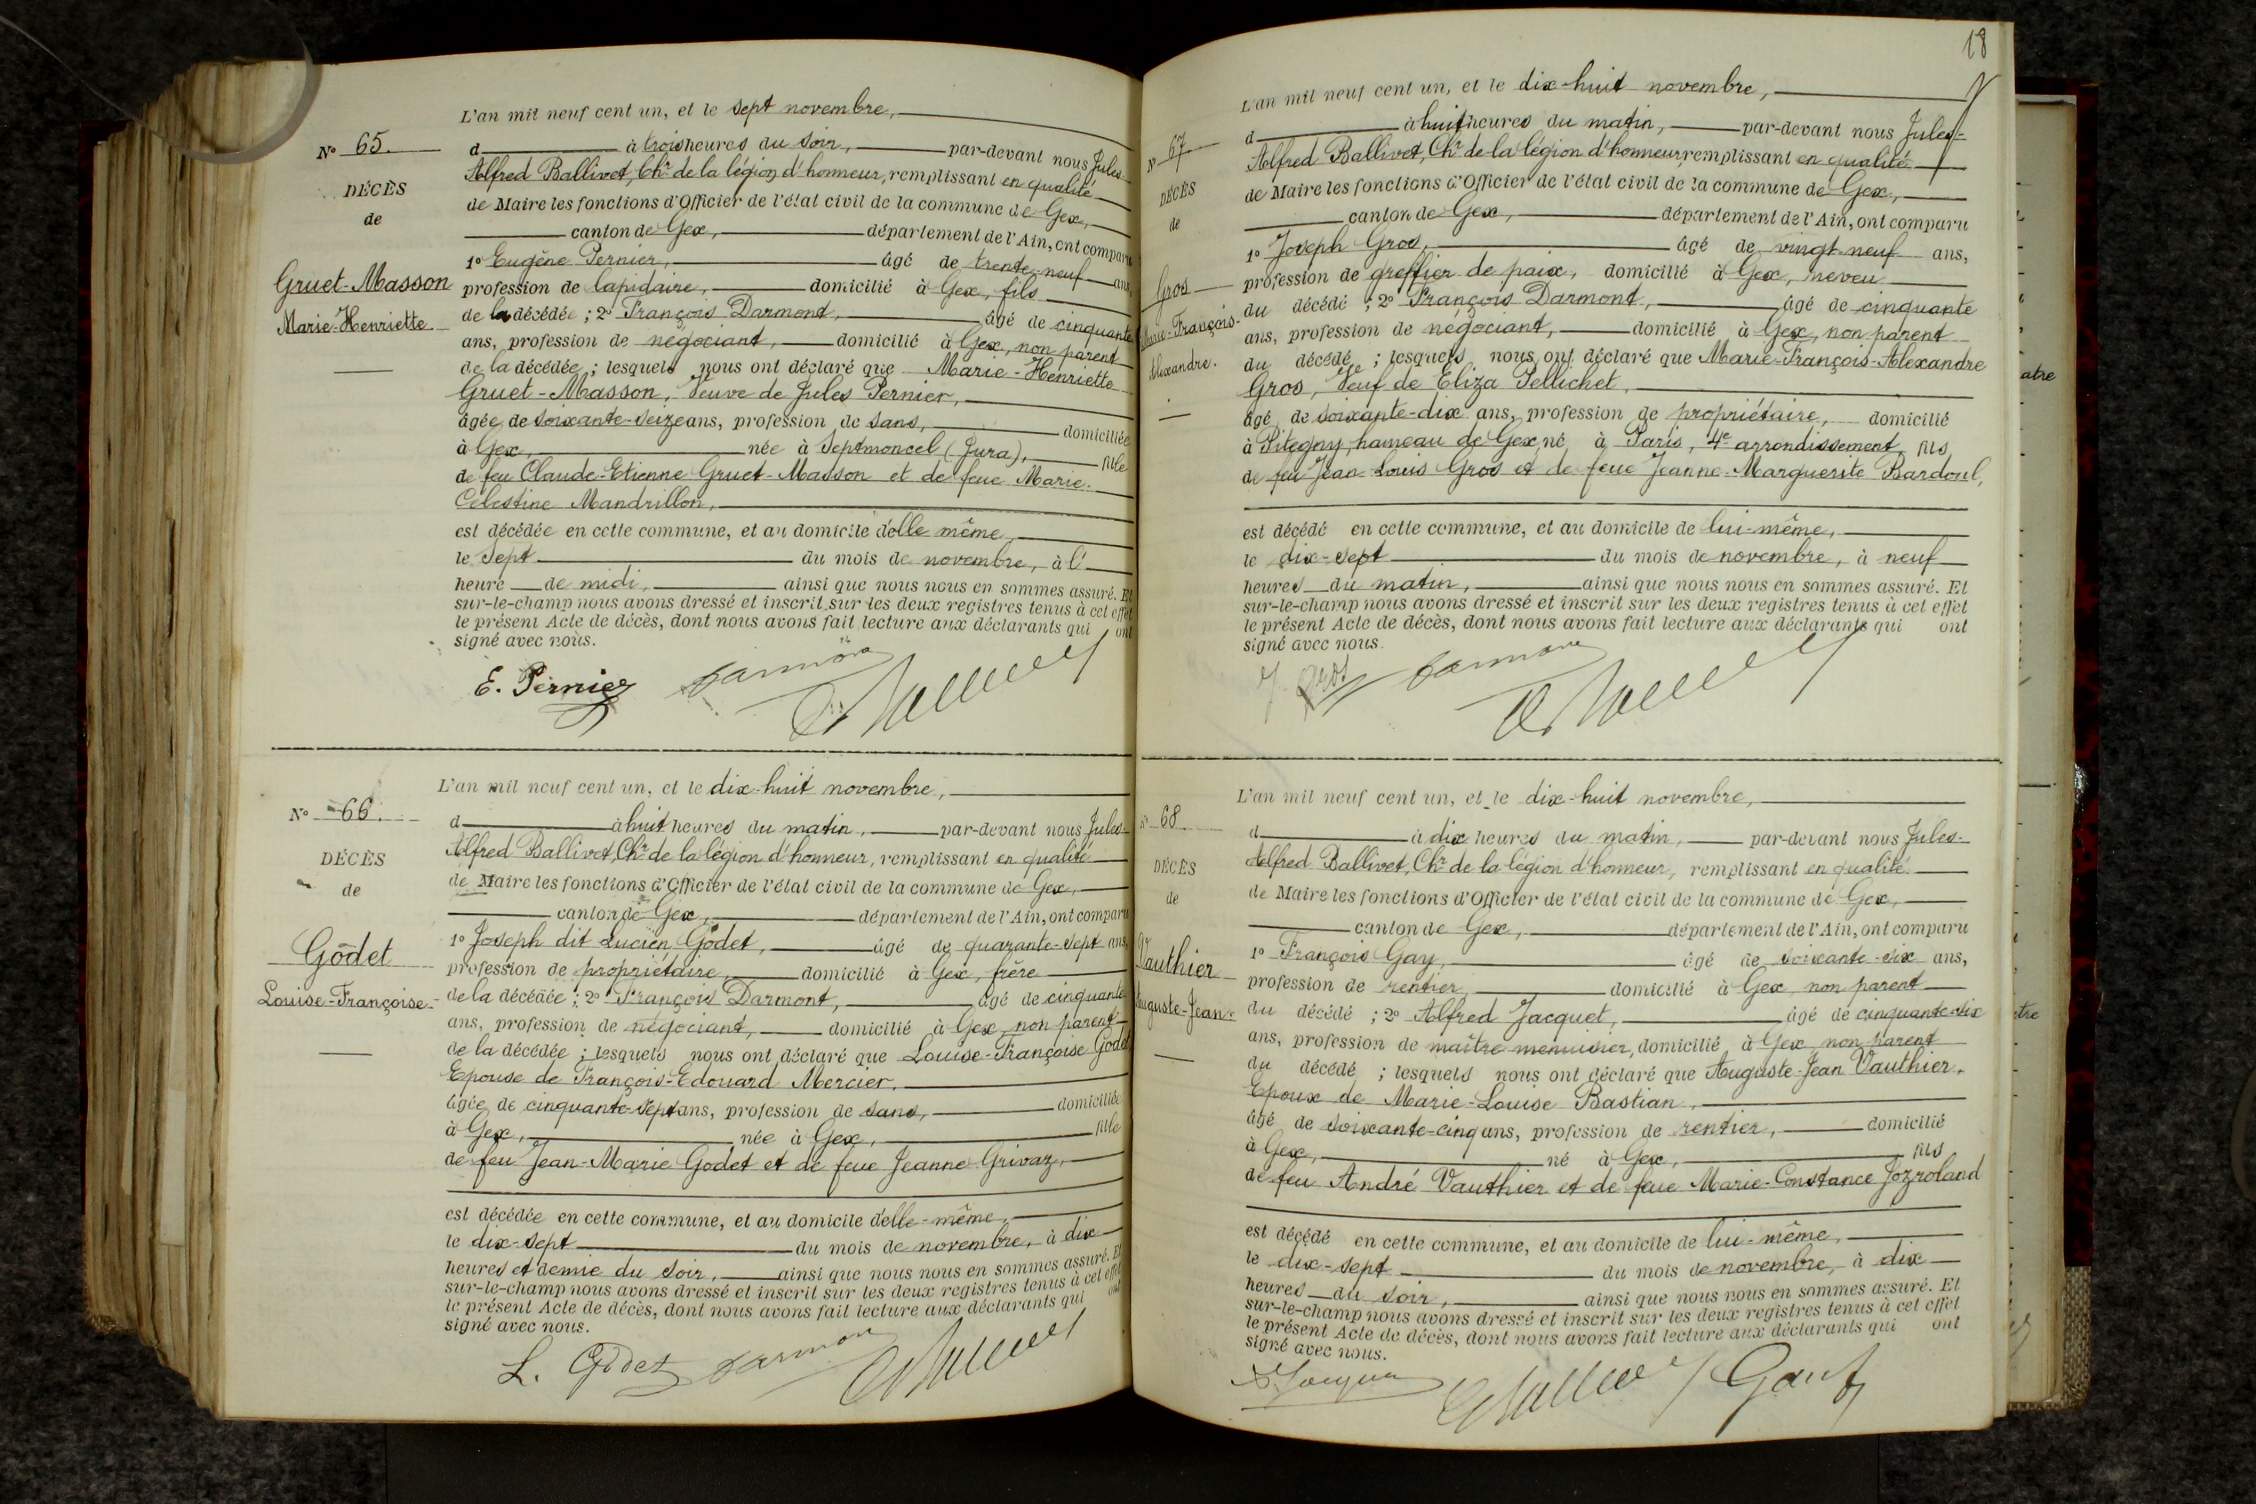 N° 65.
DÉCÈS
de
Gruet-Masson
Marie-Henriette
L'an mil neuf cent un, et le sept novembre,
d à trois heures du soir, par-devant nous Jules-
Alfred Ballivet, Chr de la légion d'honneur, remplissant en qualité
de Maire les fonctions d'Officier de l'état civil de la commune de Gex,
canton de Gex, département de l'Ain, ont comparu
1° Eugène Pernier, âgé de trente-neuf ans,
profession de lapidaire, domicilié à Gex, fils
de la décédée ; 2° François Darmont, âgé de cinquante
ans, profession de négociant, domicilié à Gex, non parent
de la décédée ; lesquels nous ont déclaré que Marie-Henriette
Gruet-Masson, Veuve de Jules Pernier,
âgée de soixante-seize ans, profession de sans, domiciliée
à Gex, née à Septmoncel (Jura), fille
de feu Claude-Etienne Gruet-Masson et de feue Marie-
Célestine Mandrillon,
est décédée en cette commune, et au domicile d'elle même,
le sept du mois de novembre, à l'
heure de midi, ainsi que nous nous en sommes assuré. Et
sur-le-champ nous avons dressé et inscrit sur les deux registres tenus à cet effet
le présent Acte de décès, dont nous avons fait lecture aux déclarants qui ont
signé avec nous.
E. Pernier Darmont
N° 66.
DÉCÈS
de
Godet
Louise-Françoise
L'an mil neuf cent un, et le dix-huit novembre,
d à huit heures du matin, par-devant nous Jules-
Alfred Ballivet, Chr de la légion d'honneur, remplissant en qualité
de Maire les fonctions d'Officier de l'état civil de la commune de Gex,
canton de Gex, département de l'Ain, ont comparu
1° Joseph dit Lucien Godet, âgé de quarante-sept ans,
profession de propriétaire, domicilié à Gex, frère
de la décédée ; 2° François Darmont, âgé de cinquante
ans, profession de négociant, domicilié à Gex, non parent
de la décédée ; lesquels nous ont déclaré que Louise-Françoise Godet
Epouse de François-Edouard Mercier,
âgée de cinquante-sept ans, profession de sans, domiciliée
à Gex, née à Gex, fille
de feu Jean-Marie Godet et de feue Jeanne Grivaz,
est décédée en cette commune, et au domicile d'elle-même,
le dix-sept du mois de novembre, à dix
heures et demie du soir, ainsi que nous nous en sommes assuré. Et
sur-le-champ nous avons dressé et inscrit sur les deux registres tenus à cet effet
le présent Acte de décès, dont nous avons fait lecture aux déclarants qui ont
signé avec nous.
L. Godet Darmont
18
N° 67
DÉCÈS
de
Gros
Marie-François-
Alexandre.
L'an mil neuf cent un, et le dix-huit novembre,
d à huit heures du matin, par-devant nous Jules-
Alfred Ballivet, Chr de la légion d'honneur, remplissant en qualité
de Maire les fonctions d'Officier de l'état civil de la commune de Gex,
canton de Gex, département de l'Ain, ont comparu
1° Joseph Gros, âgé de vingt-neuf ans,
profession de greffier de paix, domicilié à Gex, neveu
du décédé ; 2° François Darmont, âgé de cinquante
ans, profession de négociant, domicilié à Gex, non parent
du décédé ; lesquels nous ont déclaré que Marie-François-Alexandre
Gros, Veuf de Eliza Pellichet,
âgé de soixante-dix ans, profession de propriétaire, domicilié
à Pitegny, hameau de Gex né à Paris, 4e arrondissement, fils
de feu Jean-Louis Gros et de feue Jeanne-Marguerite Bardoul,
est décédé en cette commune, et au domicile de lui-même,
le dix-sept du mois de novembre, à neuf
heures du matin, ainsi que nous nous en sommes assuré. Et
sur-le-champ nous avons dressé et inscrit sur les deux registres tenus à cet effet
le présent Acte de décès, dont nous avons fait lecture aux déclarants qui ont
signé avec nous.
J. Gros Darmont
N° 68.
DÉCÈS
de
Vauthier
Auguste-Jean
L'an mil neuf cent un, et le dix-huit novembre,
d à dix heures du matin, par-devant nous Jules-
Alfred Ballivet, Chr de la légion d'honneur, remplissant en qualité
de Maire les fonctions d'Officier de l'état civil de la commune de Gex,
canton de Gex, département de l'Ain, ont comparu
1° François Gay, âgé de soixante-six ans,
profession de rentier, domicilié à Gex, non parent
du décédé ; 2° Alfred Jacquet, âgé de cinquante-six
ans, profession de maître menuisier, domicilié à Gex, non parent
du décédé ; lesquels nous ont déclaré que Auguste-Jean Vauthier,
Epoux de Marie-Louise Bastian,
âgé de soixante-cinq ans, profession de rentier, domicilié
à Gex, né à Gex, fils
de feu André Vauthier et de feue Marie-Constance Jozroland
est décédé en cette commune, et au domicile de lui-même,
le dix-sept du mois de novembre, à dix
heures du soir, ainsi que nous nous en sommes assuré. Et
sur-le-champ nous avons dressé et inscrit sur les deux registres tenus à cet effet
le présent Acte de décès, dont nous avons fait lecture aux déclarants qui ont
signé avec nous.
Gay
atre
tre